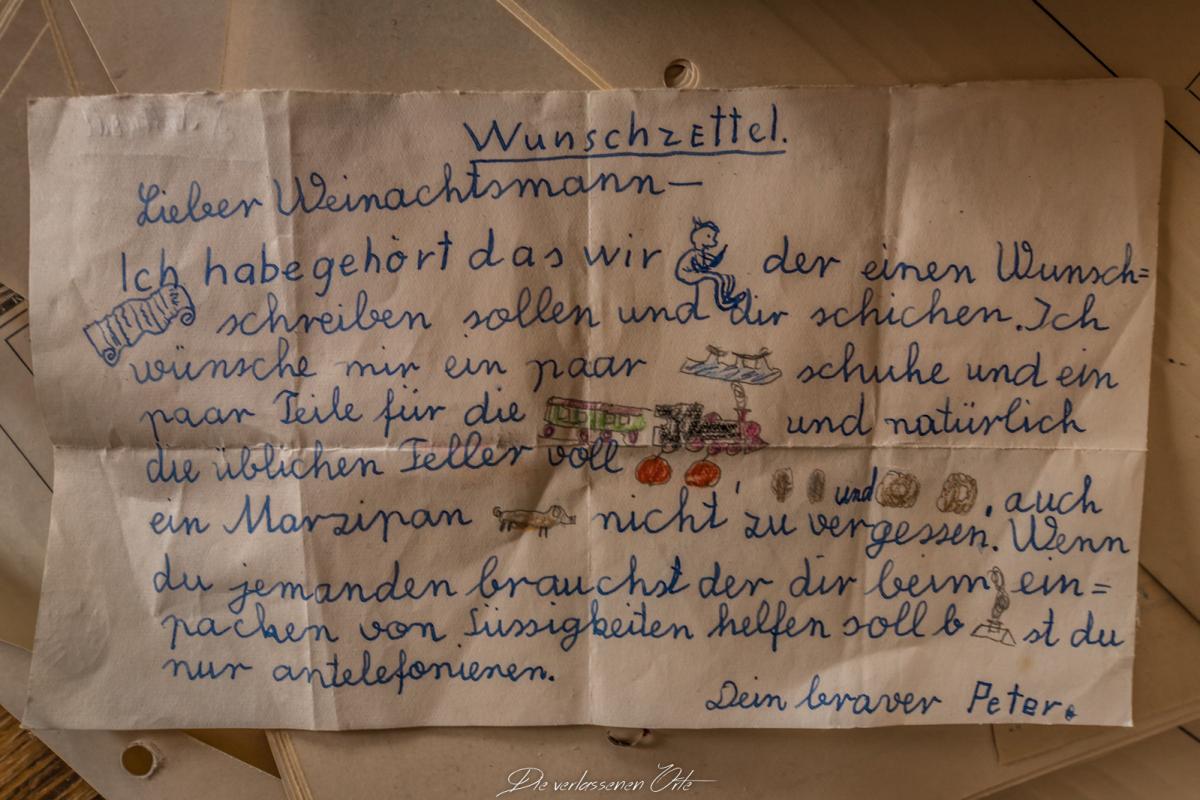 Wunschzettel.
Lieber Weinachtsmann—
Ich habe gehört das wir der einen Wunsch=
schreiben sollen und dir schichen. Ich
wünsche mir ein paar schuhe und ein
paar Teile für die und natürlich
die üblichen Teller voll
, und , auch
ein Marzipan nicht zu vergessen. Wenn
du jemanden brauchst der dir beim ein=
packen von Süssigkeiten helfen soll b st du
nur antelefonieren.
Dein braver Peter.
Die verlassenen Orte